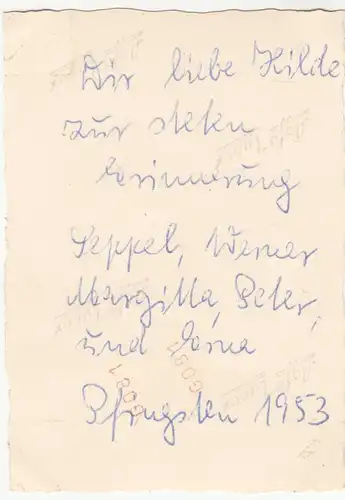 Dir liebe Hilde
zur steten
Erinnerung
Seppel, Werner
Margitta, Peter,
und Erna
Pfingsten 1953